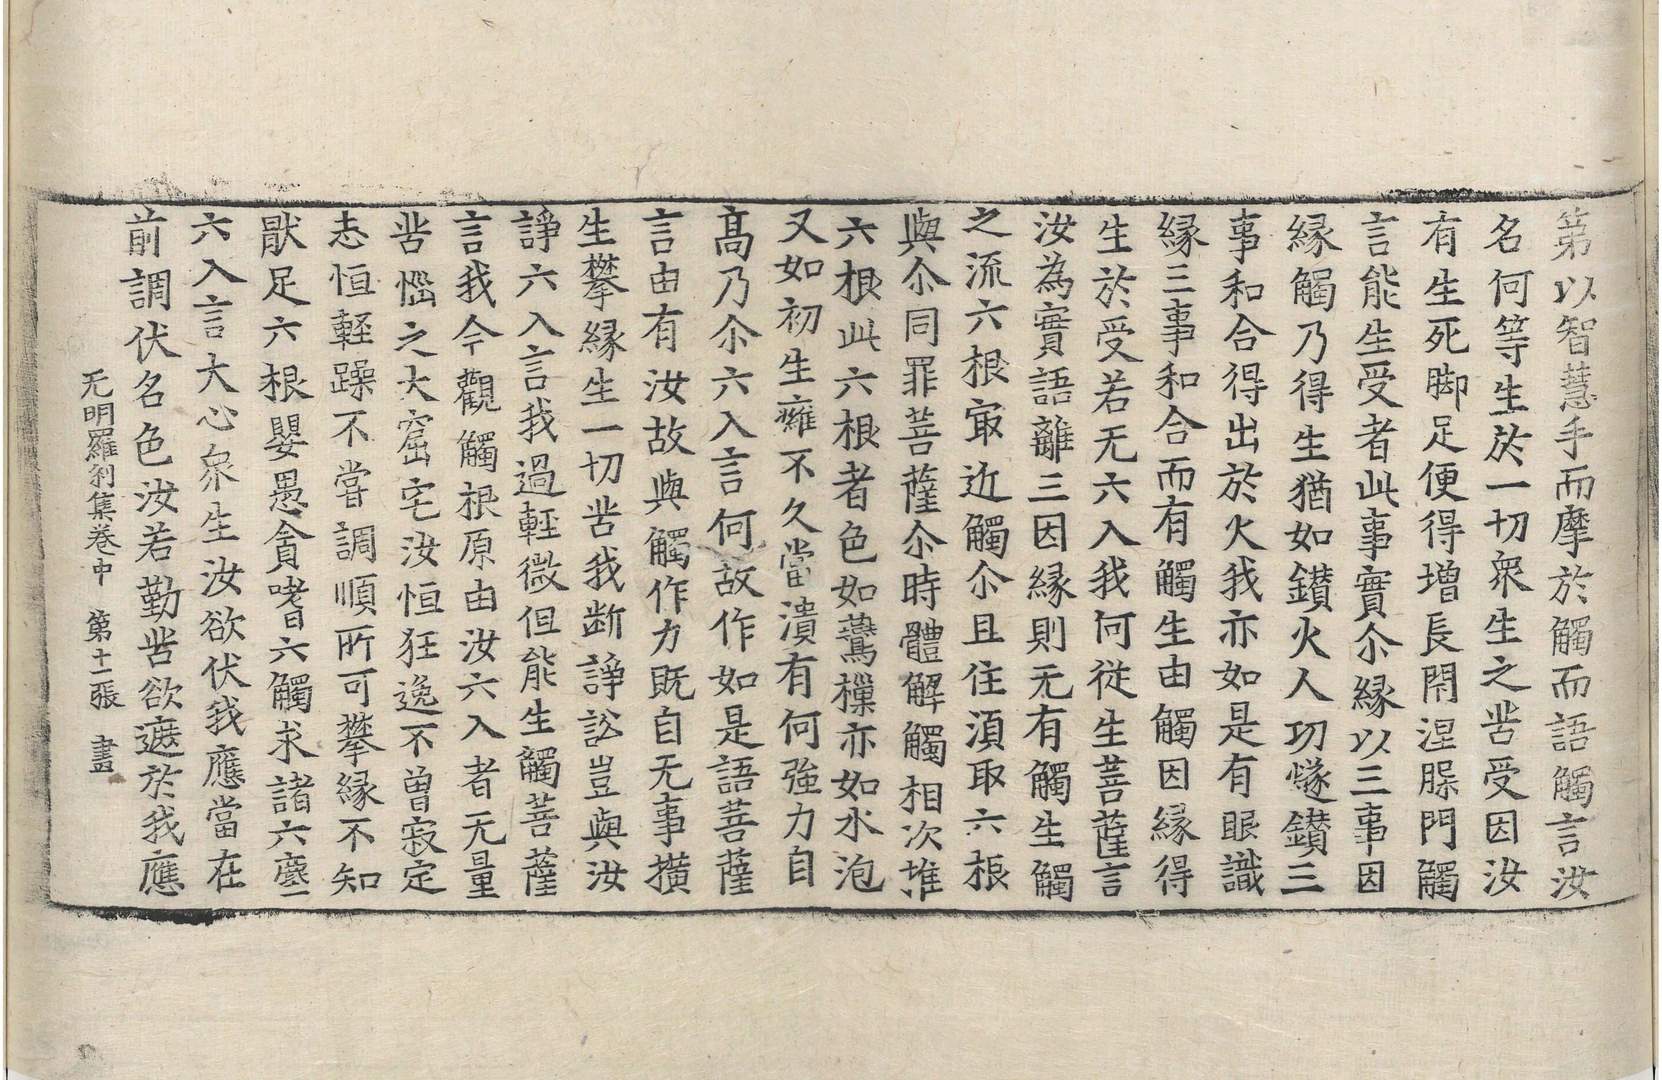 第以智慧手而摩於觸而語觸言汝
名何等生於一切衆生之苦受因汝
有生死脚足便得增長閇涅槃門觸
言能生受者此事實尒緣以三事因
緣觸乃得生猶如鑚火人功燧鑚三
事和合得出於火我亦如是有眼識
緣三事和合而有觸生由觸因緣得
生於受若无六入我何從生菩薩言
汝為實語離三因緣則无有觸生觸
之流六根㝡近觸尒且住湏取六根
與尒同罪菩薩尒時體解觸相次推
六根此六根者色如鷰樔亦如水泡
又如初生癰不久當潰有何強力自
髙乃尒六入言何故作如是語菩薩
言由有汝故與觸作力既自无事橫
生攀緣生一切苦我断諍訟豈與汝
諍六入言我過輕微但能生觸菩薩
言我今觀觸根原由汝六入者无量
苦惱之大窟宅汝恒狂逸不曾寂定
志恒輕躁不甞調順所可攀緣不知
猒足六根嬰愚貪嗜六觸求諸六塵
六入言大心衆生汝欲伏我應當在
前調伏名色汝若勤苦欲遮於我應
无明羅刹集卷中 第十一張 畫